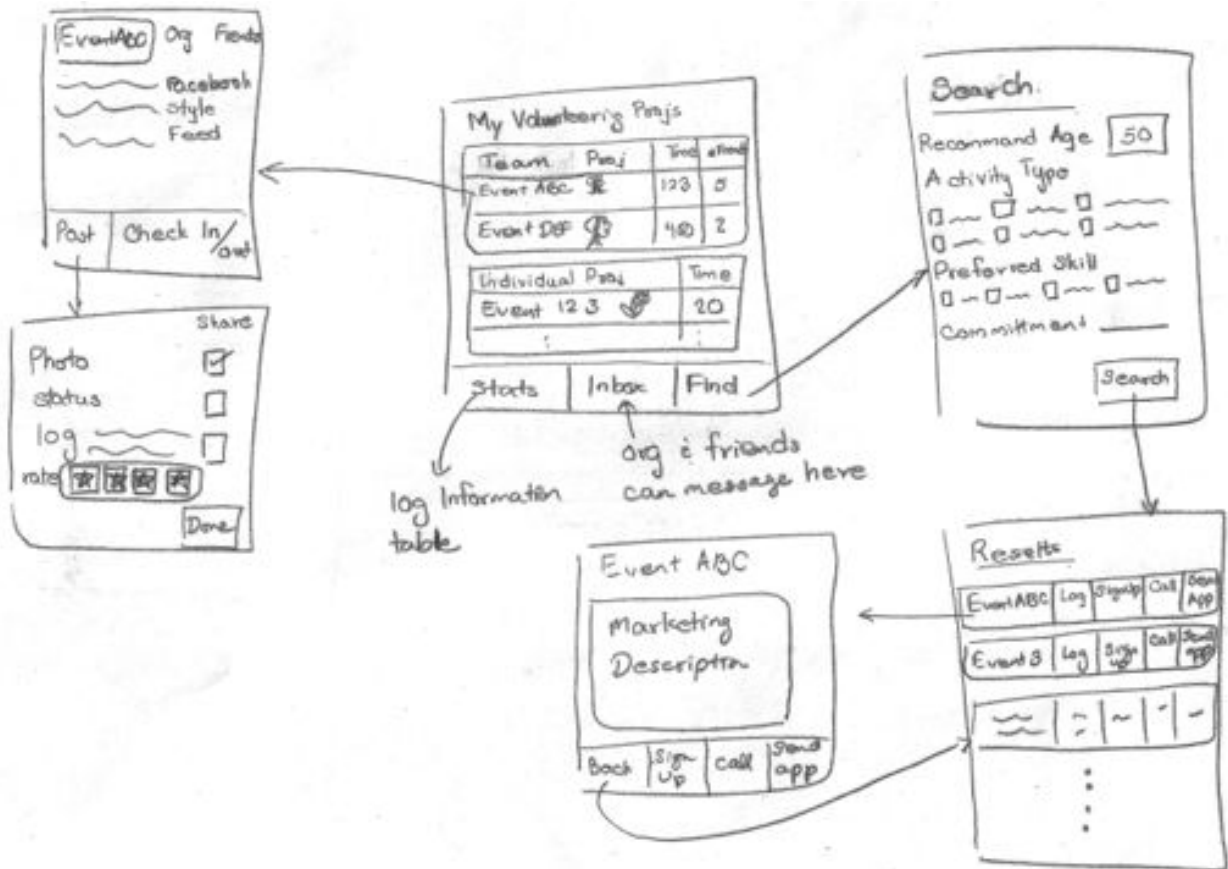 EventABC Org Friends
Facebook
Style
Feed
Post Check In/out
Share
Photo
status
log
rate
Done
My Volunteering Projs
Team Proj Time #Friends
Event ABC 123 5
Event DEF 2
Individual Proj Time
Event 123 20
Inbox Find
log Information
table
org & friends
can message here
Search
Recommand Age 50
Activity Type
Preferred Skill
Committment
Search
Results
EventABC Log SignUp Call Send App
Event 3 Log Sign up Call Send app
Event ABC
Marketing
Descriptn
Back Sign Up Call Send app